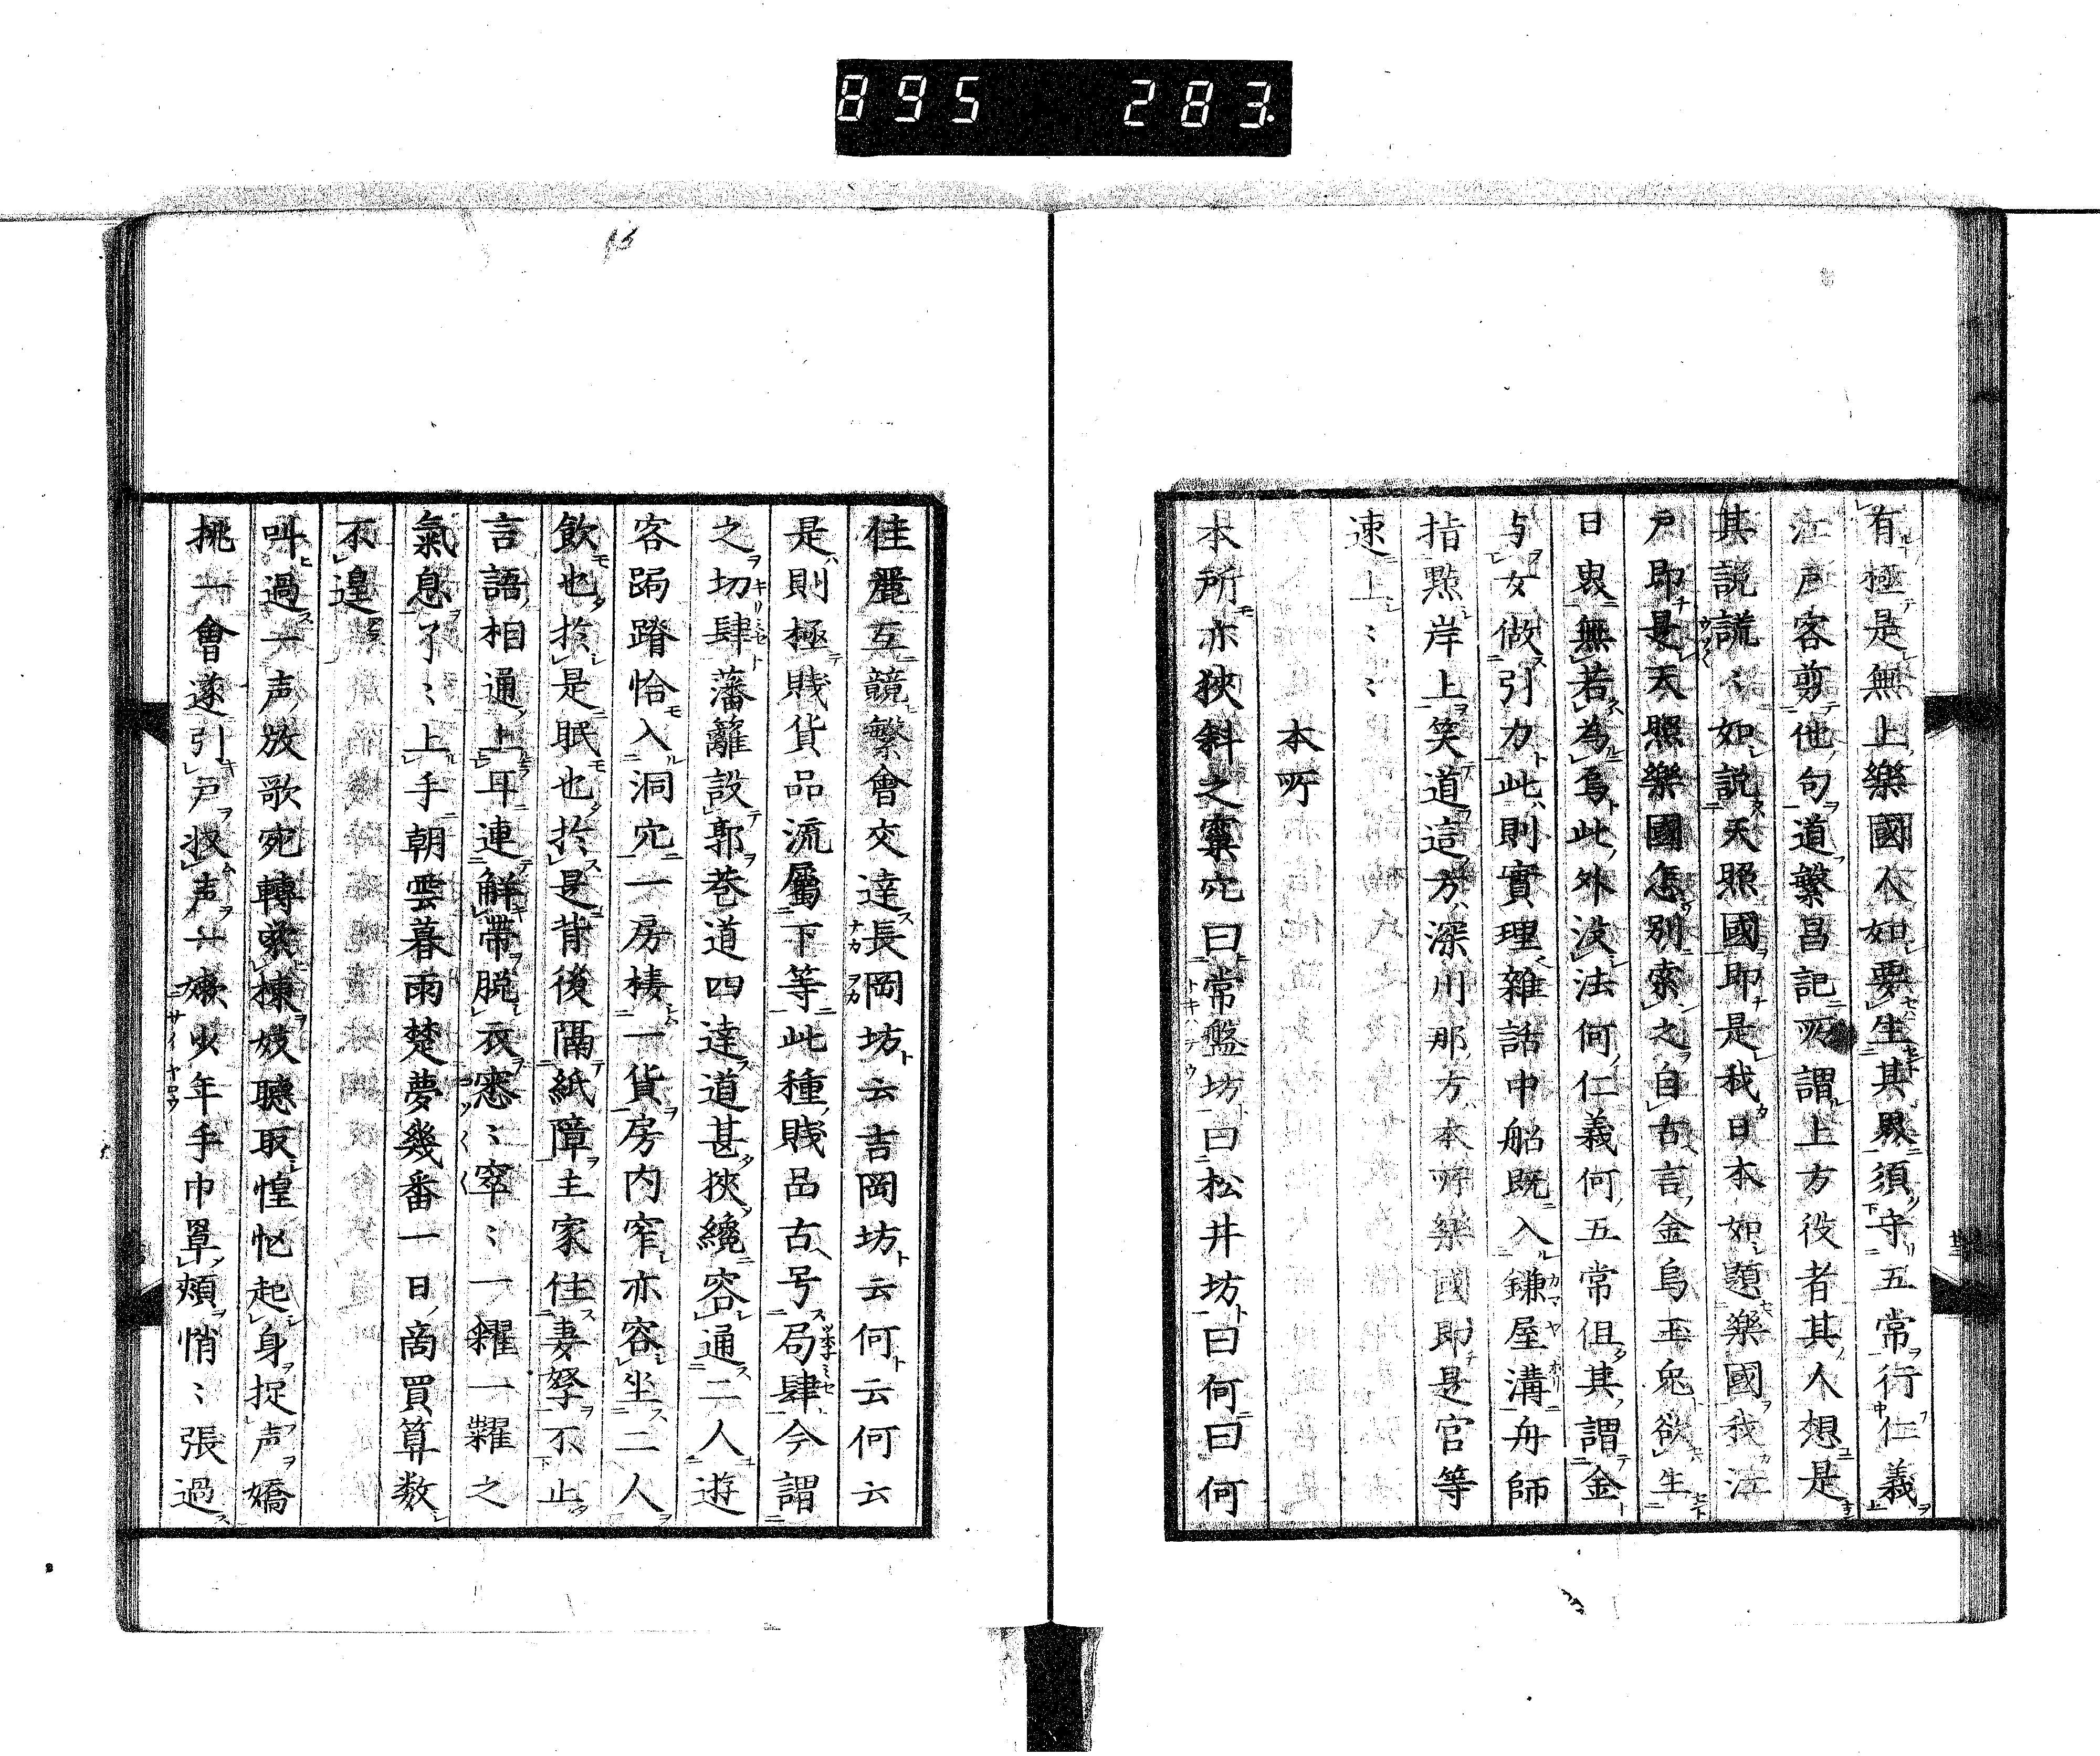 895 283
有極是無上樂國人如要生其界須守五常行仁義
江戸客剪他句道繁昌記所謂上方役者其人想是
其説謊〻如説天照國即是我日本如題樂國我江
戸即是天照樂國怎別索之自古言金烏玉兔欲生
日裏無若為烏此外没法何仁義何五常但其謂金
与女做引力此則實理雜話中船既入鎌屋溝舟師
指點岸上笑道這方深川那方本所樂國即是官等
速上〻〻
本所
本所亦狹斜之窠穴曰常盤坊曰松井坊曰何曰何
佳麗互競繁會交達長岡坊云吉岡坊云何云何云
是則極賤貨品流屬下等此種賤品古号局肆今謂
之切肆藩籬設郭巷道四達道甚狹纔容通二人遊
客跼蹐恰入洞穴一房棲一貨房内窄亦容坐二人
飲也於是眠也於是背後隔紙障主家住妻孥不止
言語相通上耳連解帶脱衣窸〻窣〻一糶一糴之
氣息了〻上手朝雲暮雨楚夢幾番一日商買算数
不遑
叫過一声放歌宛轉索揀妓聽取惶忙起身捉声嬌
挑一會遂引戸扠声一嫰少年手巾罩頰悄〻張過